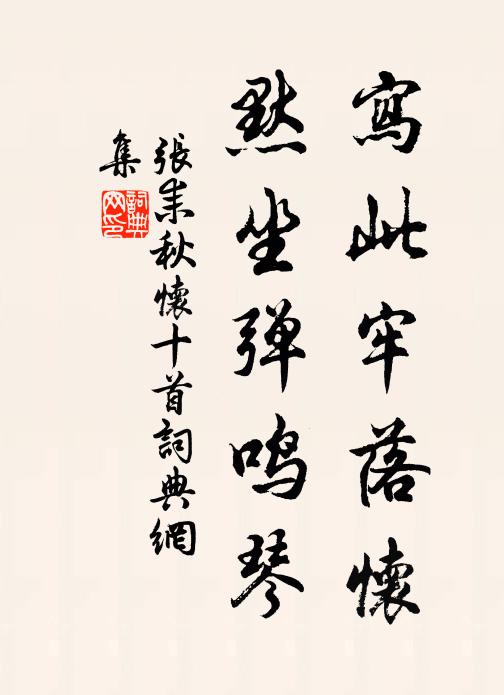 寫此牢落懷
默坐弹鸣琴
張耒秋懷十首詞典網
集
詞典
网印